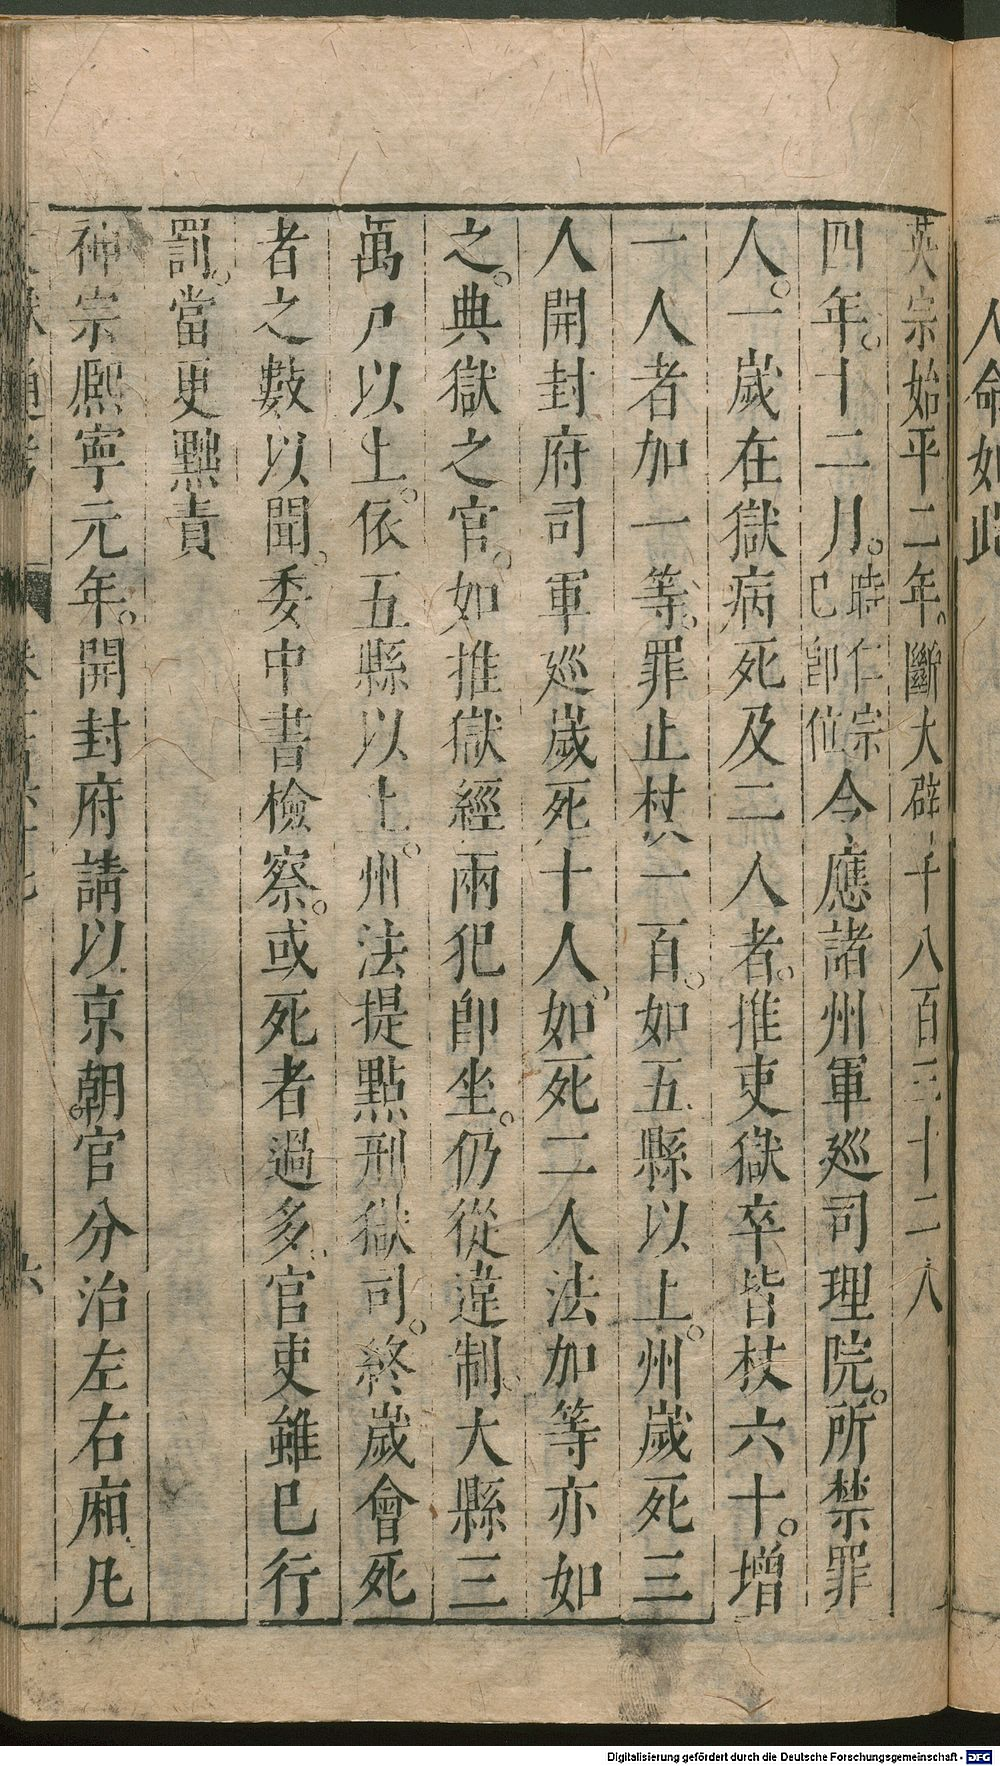 英宗始平二年。斷大辟千八百三十二人
四年。十二月。時仁宗已卽位今應諸州軍巡司理院。所禁罪
人。一歲在獄病死及二人者。推吏獄卒皆杖六十。增
一人者加一等。罪止杖一百。如五縣以上。州歲死三
人開封府司軍巡歲死十人。如死二人法加等亦如
之。典獄之官。如推獄經兩犯卽坐。仍從違制。大縣三
萬戶以上。依五縣以上。州法提點刑獄司。終歲會死
者之數以聞。委中書檢察。或死者過多。官吏雖已行
罰。當更黜責
神宗熙寧元年。開封府請以京朝。官分治左右廂凡
人命如此
Digitalisierung gefördert durch die Deutsche Forschungsgemeinschaft - DFG